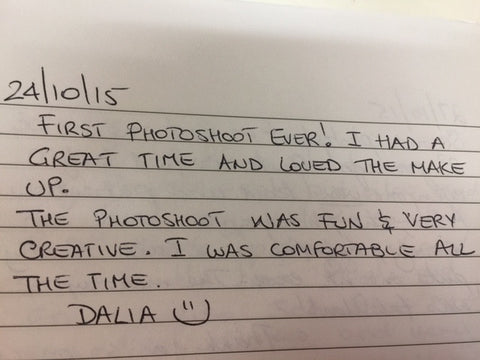 24/10/15
FIRST PHOTOSHOOT EVER! I HAD A
GREAT TIME AND LOVED THE MAKE
UP.
THE PHOTOSHOOT WAS FUN & VERY
CREATIVE. I WAS COMFORTABLE ALL
THE TIME.
DALIA